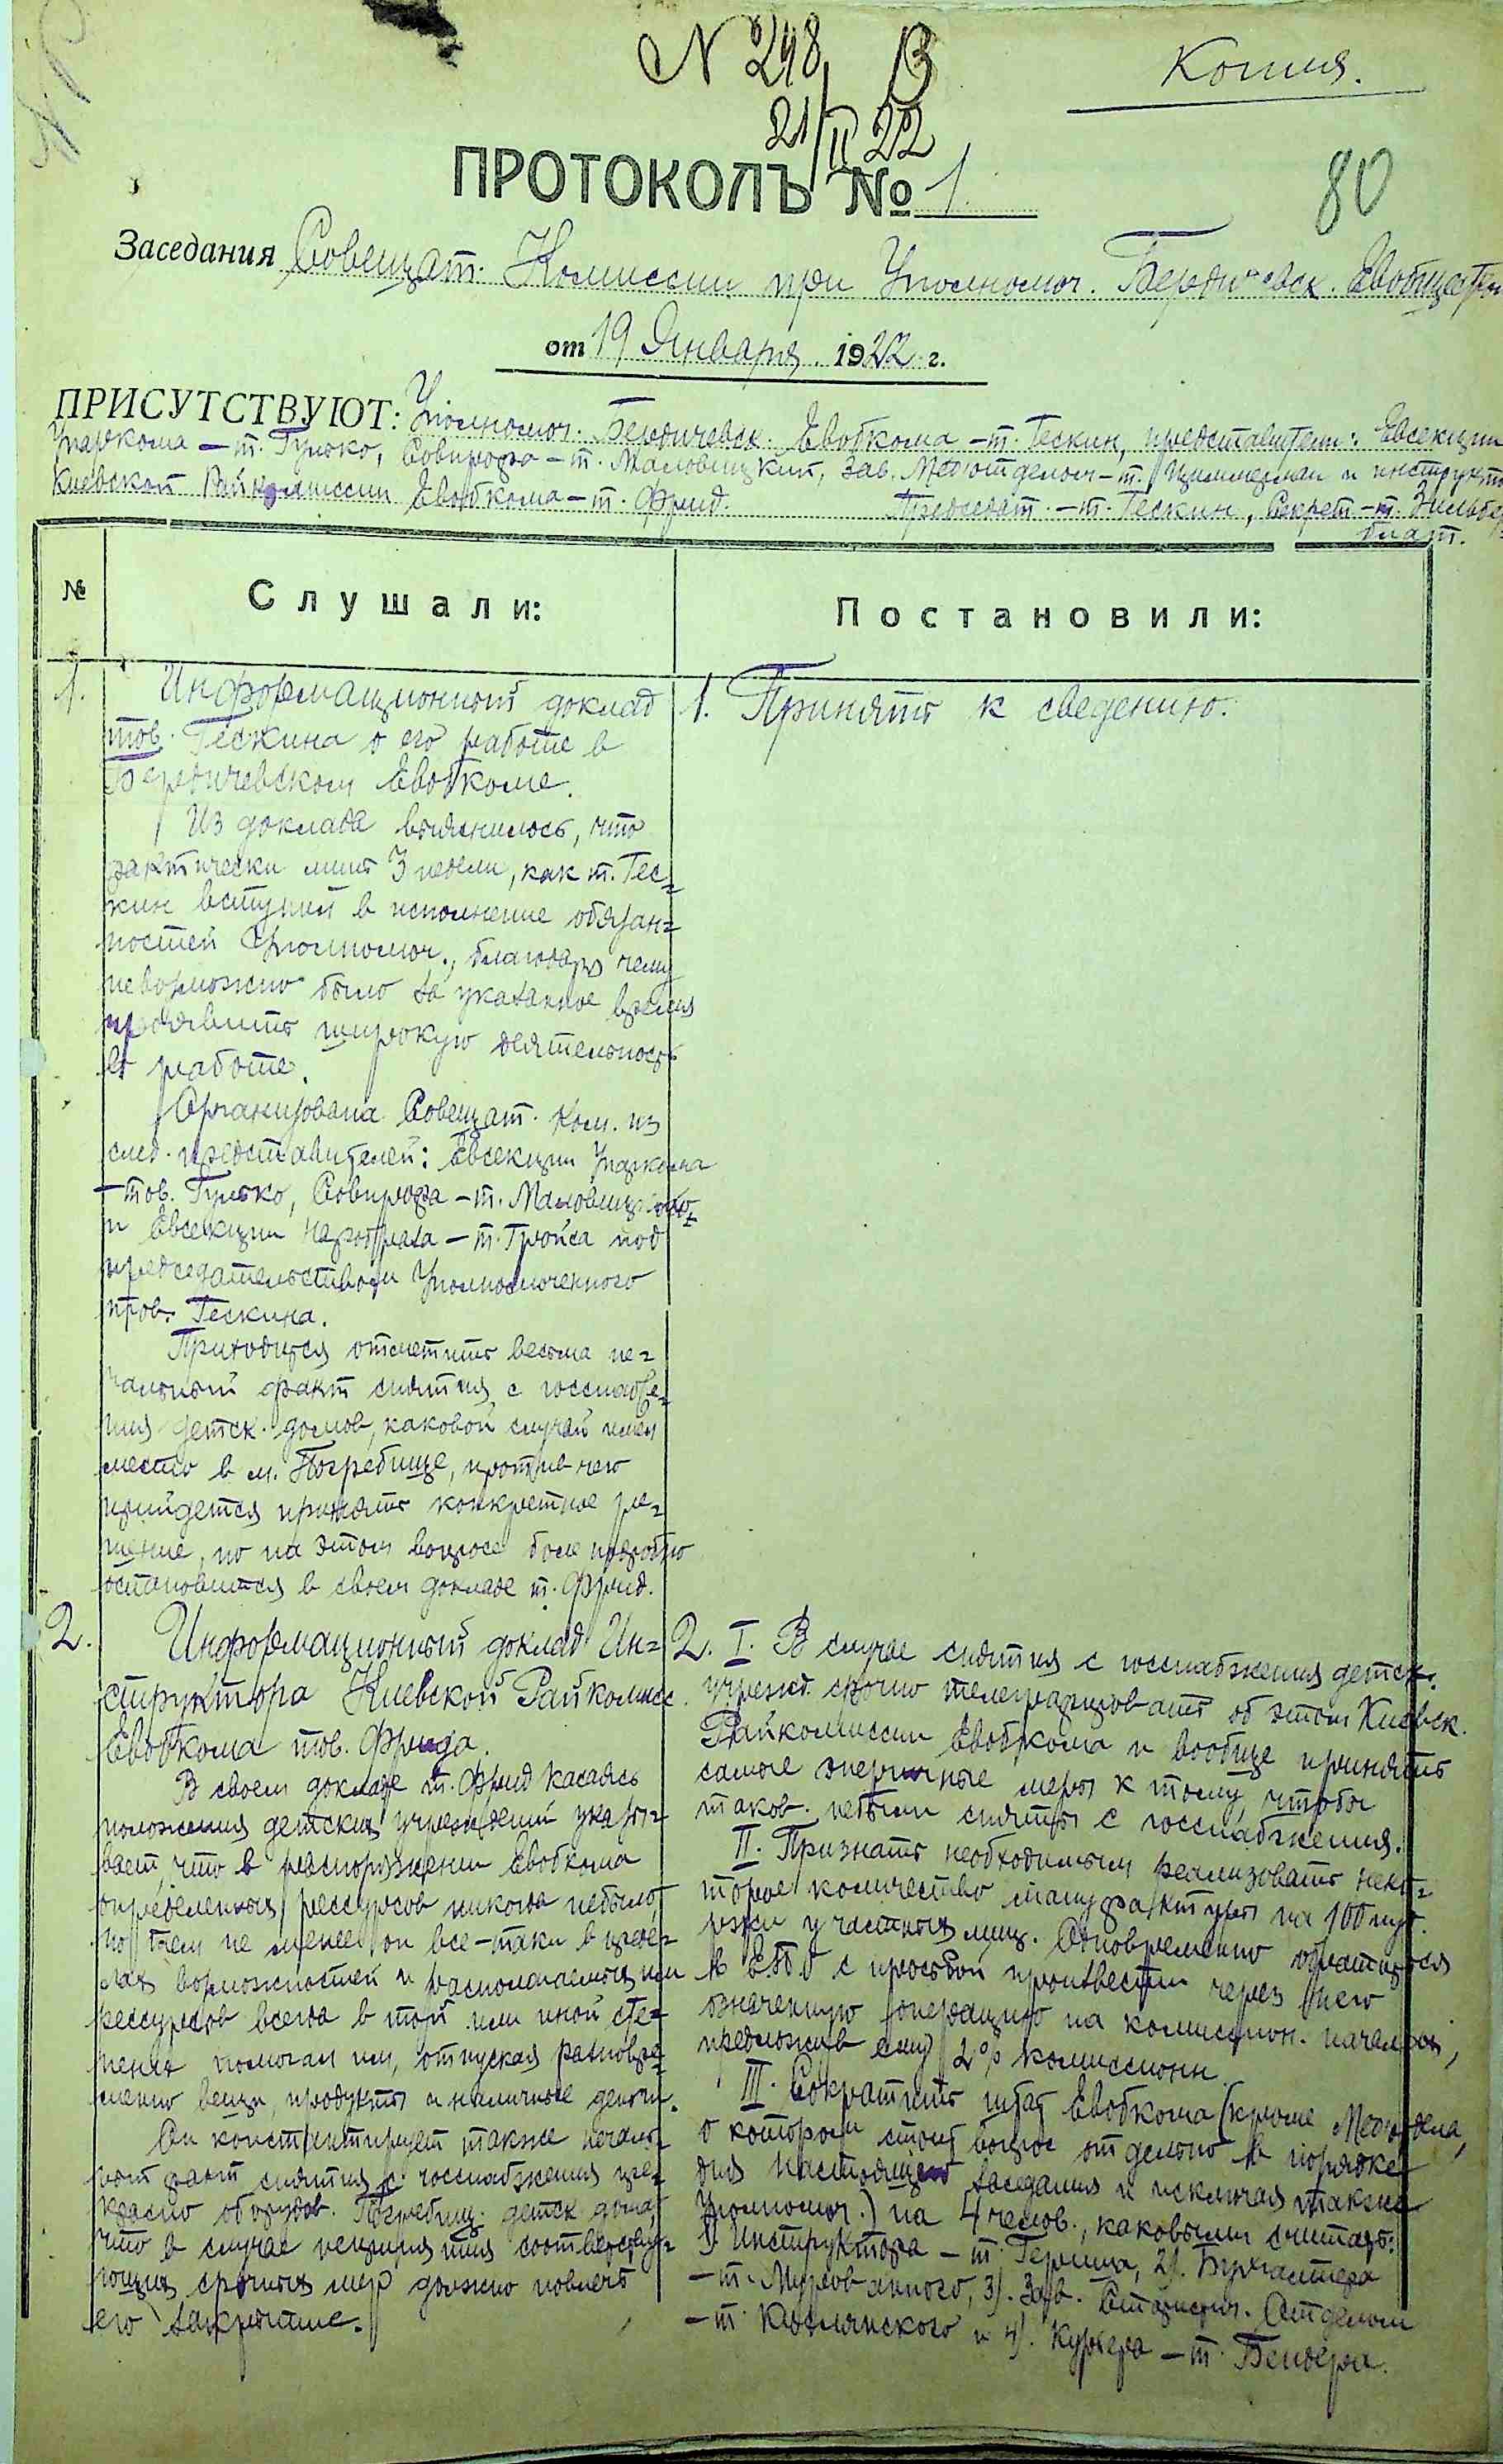 N 248
13
Копия.
21/II 22
ПРОТОКОЛЪ № 1.
80
Заседания Совещат. Комиссии при Уполномоч. Бердичевск. Евобществ
от 19 Января 1922 г.
ПРИСУТСТВУЮТ: Уполномоч. Бердичевск. Евобкома – т. Тескин, представители: Евсекции
Упаркома – т. Гулько, Совпрофа – т. Маловицкий, Зав. Медотделом – т. Циммерман и инструкто
Киевской Райкомиссии Евобкома – т. Фрид. Председат. – т. Тескин, Секрет – т. Зильбер
блат.
№
Слушали:
Постановили:
1. Информационный доклад
тов. Тескина о его работе в
Бердичевском Евобкоме.
Из доклада выяснилось, что
фактически лишь 3 недели, как т. Тес=
кин вступил в исполнение обязан=
ностей Уполномоч., благодаря чему
невозможно было за указанное время
проявить широкую деятельность
в работе.
Организована Совещат. Ком. из
след. представителей: Евсекции Упаркома
– тов. Гулько, Совпрофа – т. Маловицкого
и Евсекции Наробраза – т. Гройса под
председательством Уполномоченного
тов. Тескина.
Приходится отметить весьма пе=
чальный факт снятия с госснабже=
ния детск. домов, каковой случай имел
место в м. Погребище, против чего
прийдется принять конкретное ре=
шение, но на этом вопросе боле подробно
остановится в своем докладе т. Фрид.
1. Принять к сведению.
2. Информационный доклад Ин=
структора Киевской Райкомисс.
Евобкома тов. Фрида.
В своем докладе т. Фрид касаясь
положения детских учреждений указы=
вает, что в распоряжении Евобкома
определенных рессурсов никогда небыло,
но тем не менее он все-таки в преде=
лах возможностей и располагаемых им
рессурсов всегда в той или иной сте=
пени помогал им, отпуская разновре=
менно вещи, продукты и наличные деньги.
Он константирует также печаль=
ный факт снятия с госснабжения пре=
красно оборудов. Погребищ. детск дома,
что в случае непринятия соответству=
ющих срочных мер должно повлечь
его закрытие.
2. I. В случае снятия с госснабжения детск.
учрежд. срочно телеграфировать об этом Киевск.
Райкомиссии Евобкома и вообще принять
самые энергичные меры к тому, чтобы
таков. небыли сняты с госснабжения.
II. Признать необходимым реализовать неко=
торое количество мануфактуры на 100 пуд.
ржи у частных лиц. Одновременно обратиться
в Е.П.О с просьбой произвести через него
означенную операцию на комиссион. началах,
предложив ему 2% комиссионн.
III. Сократить штат Евобкома (кроме Медотдела,
о котором стоит вопрос отдельно в порядке
дня настоящего заседания и исключая также
Уполномоч.) на 4 челов., каковыми считать:
1) Инструктора – т. Гершма, 2). Бухгалтера
– т. Мурованного, 3). Зав. Статистич. Отделом
– т. Козлянского и 4). Курьера – т. Бендера.